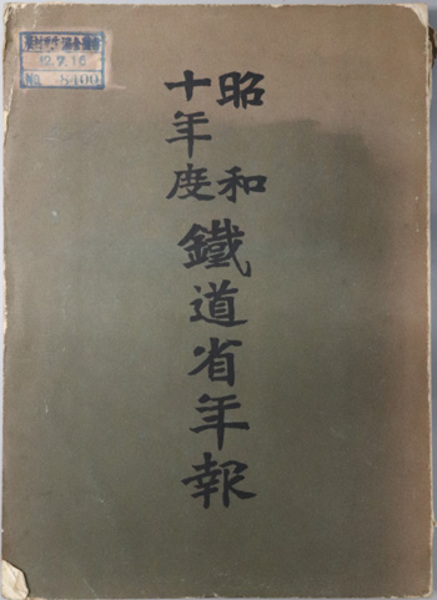 昭和
十年度
鐵道省年報
12.7.16
No. 8400